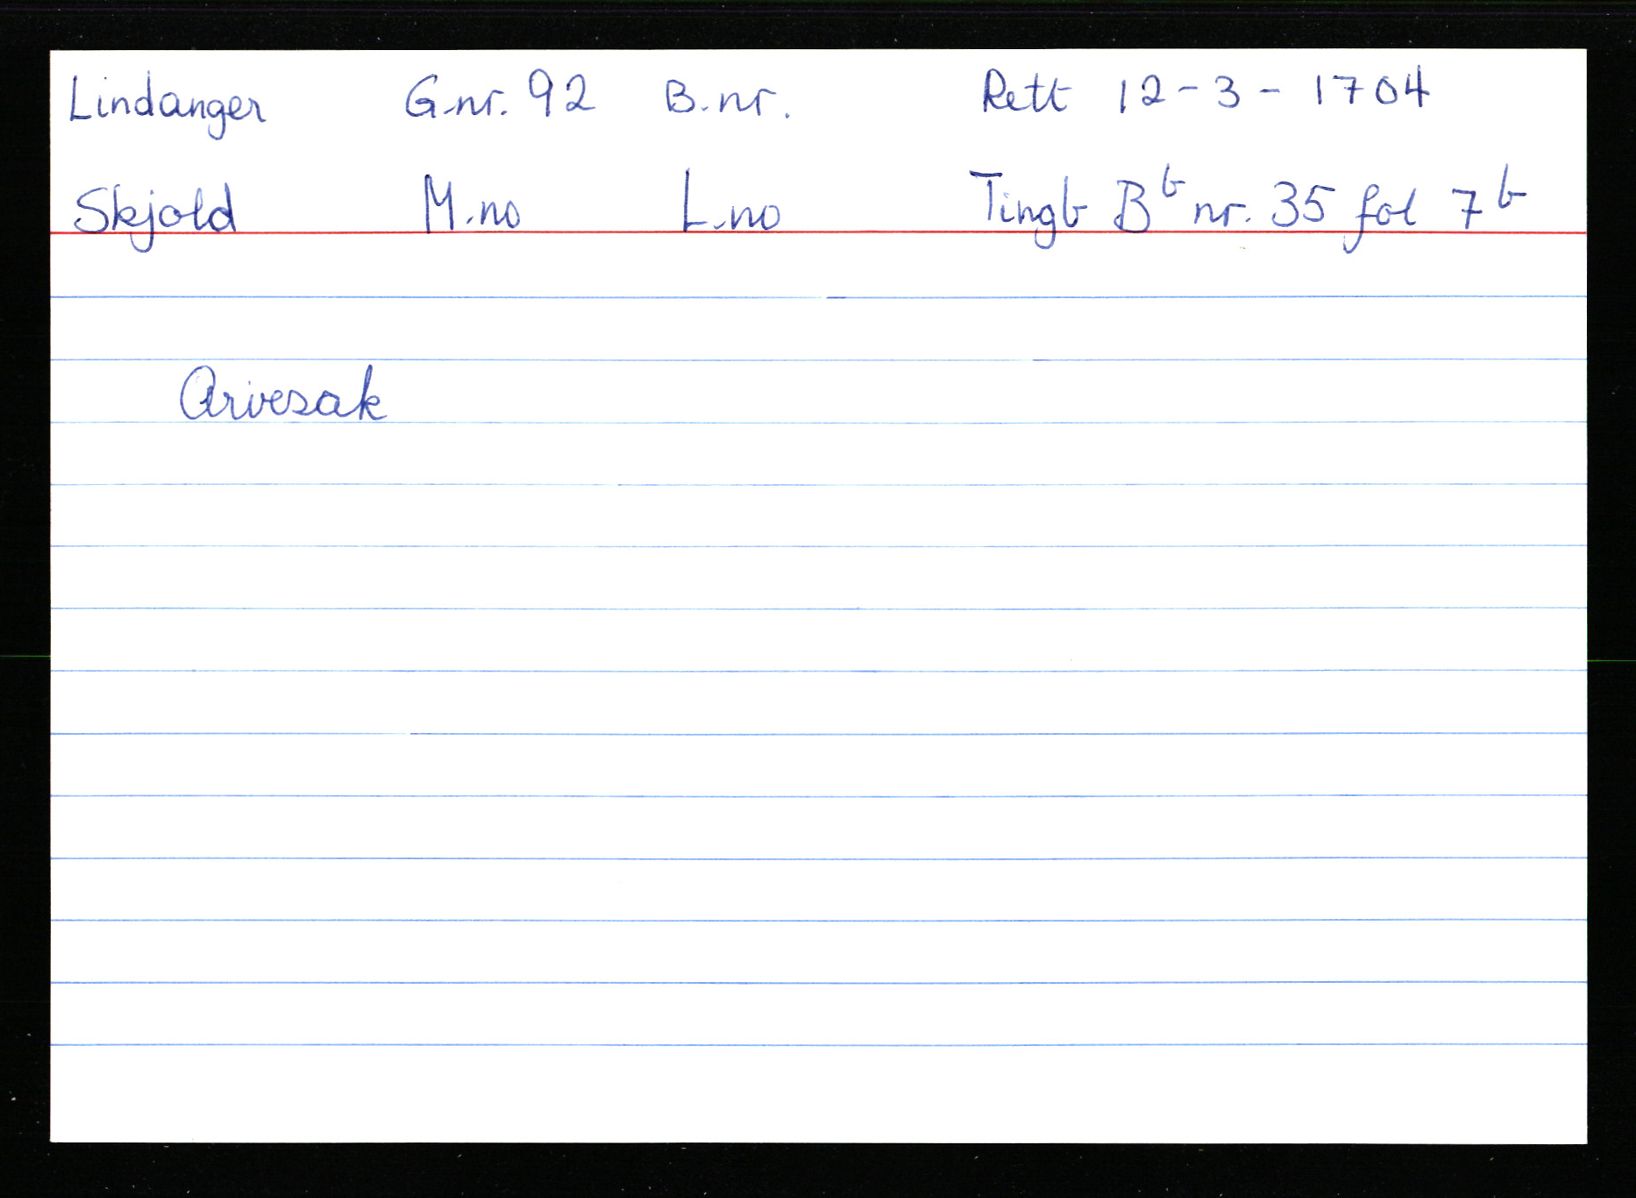 Lindanger G.nr. 92 B.nr. Rett 12-3-1704
Skjold M.no L.no Tingb Bb nr. 35 fol 7b
Arvesak